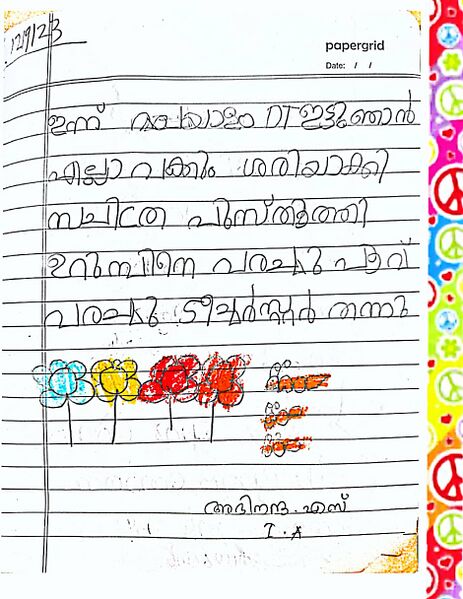 12/9/23
papergrid
Date: / /
ഇന്ന് മലയാളം DT ഇട്ടു ഞാൻ
എല്ലാ വാക്കും ശരിയാക്കി
സചിത്ര പുസ്തകത്തി
ഉറുമ്പിനെ വരച്ചു പൂവ്
വരച്ചു ടീച്ചർ സ്റ്റാർ തന്നു
അഭിനന്ദ. എസ്
I. A